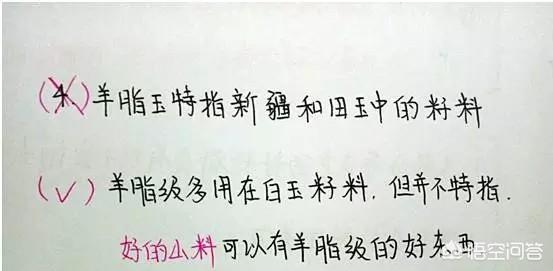 (4.)羊脂玉特指新疆和田玉中的籽料
(√)羊脂级多用在白玉籽料.但并不特指.
好的山料可以有羊脂级的好东西
悟空问答